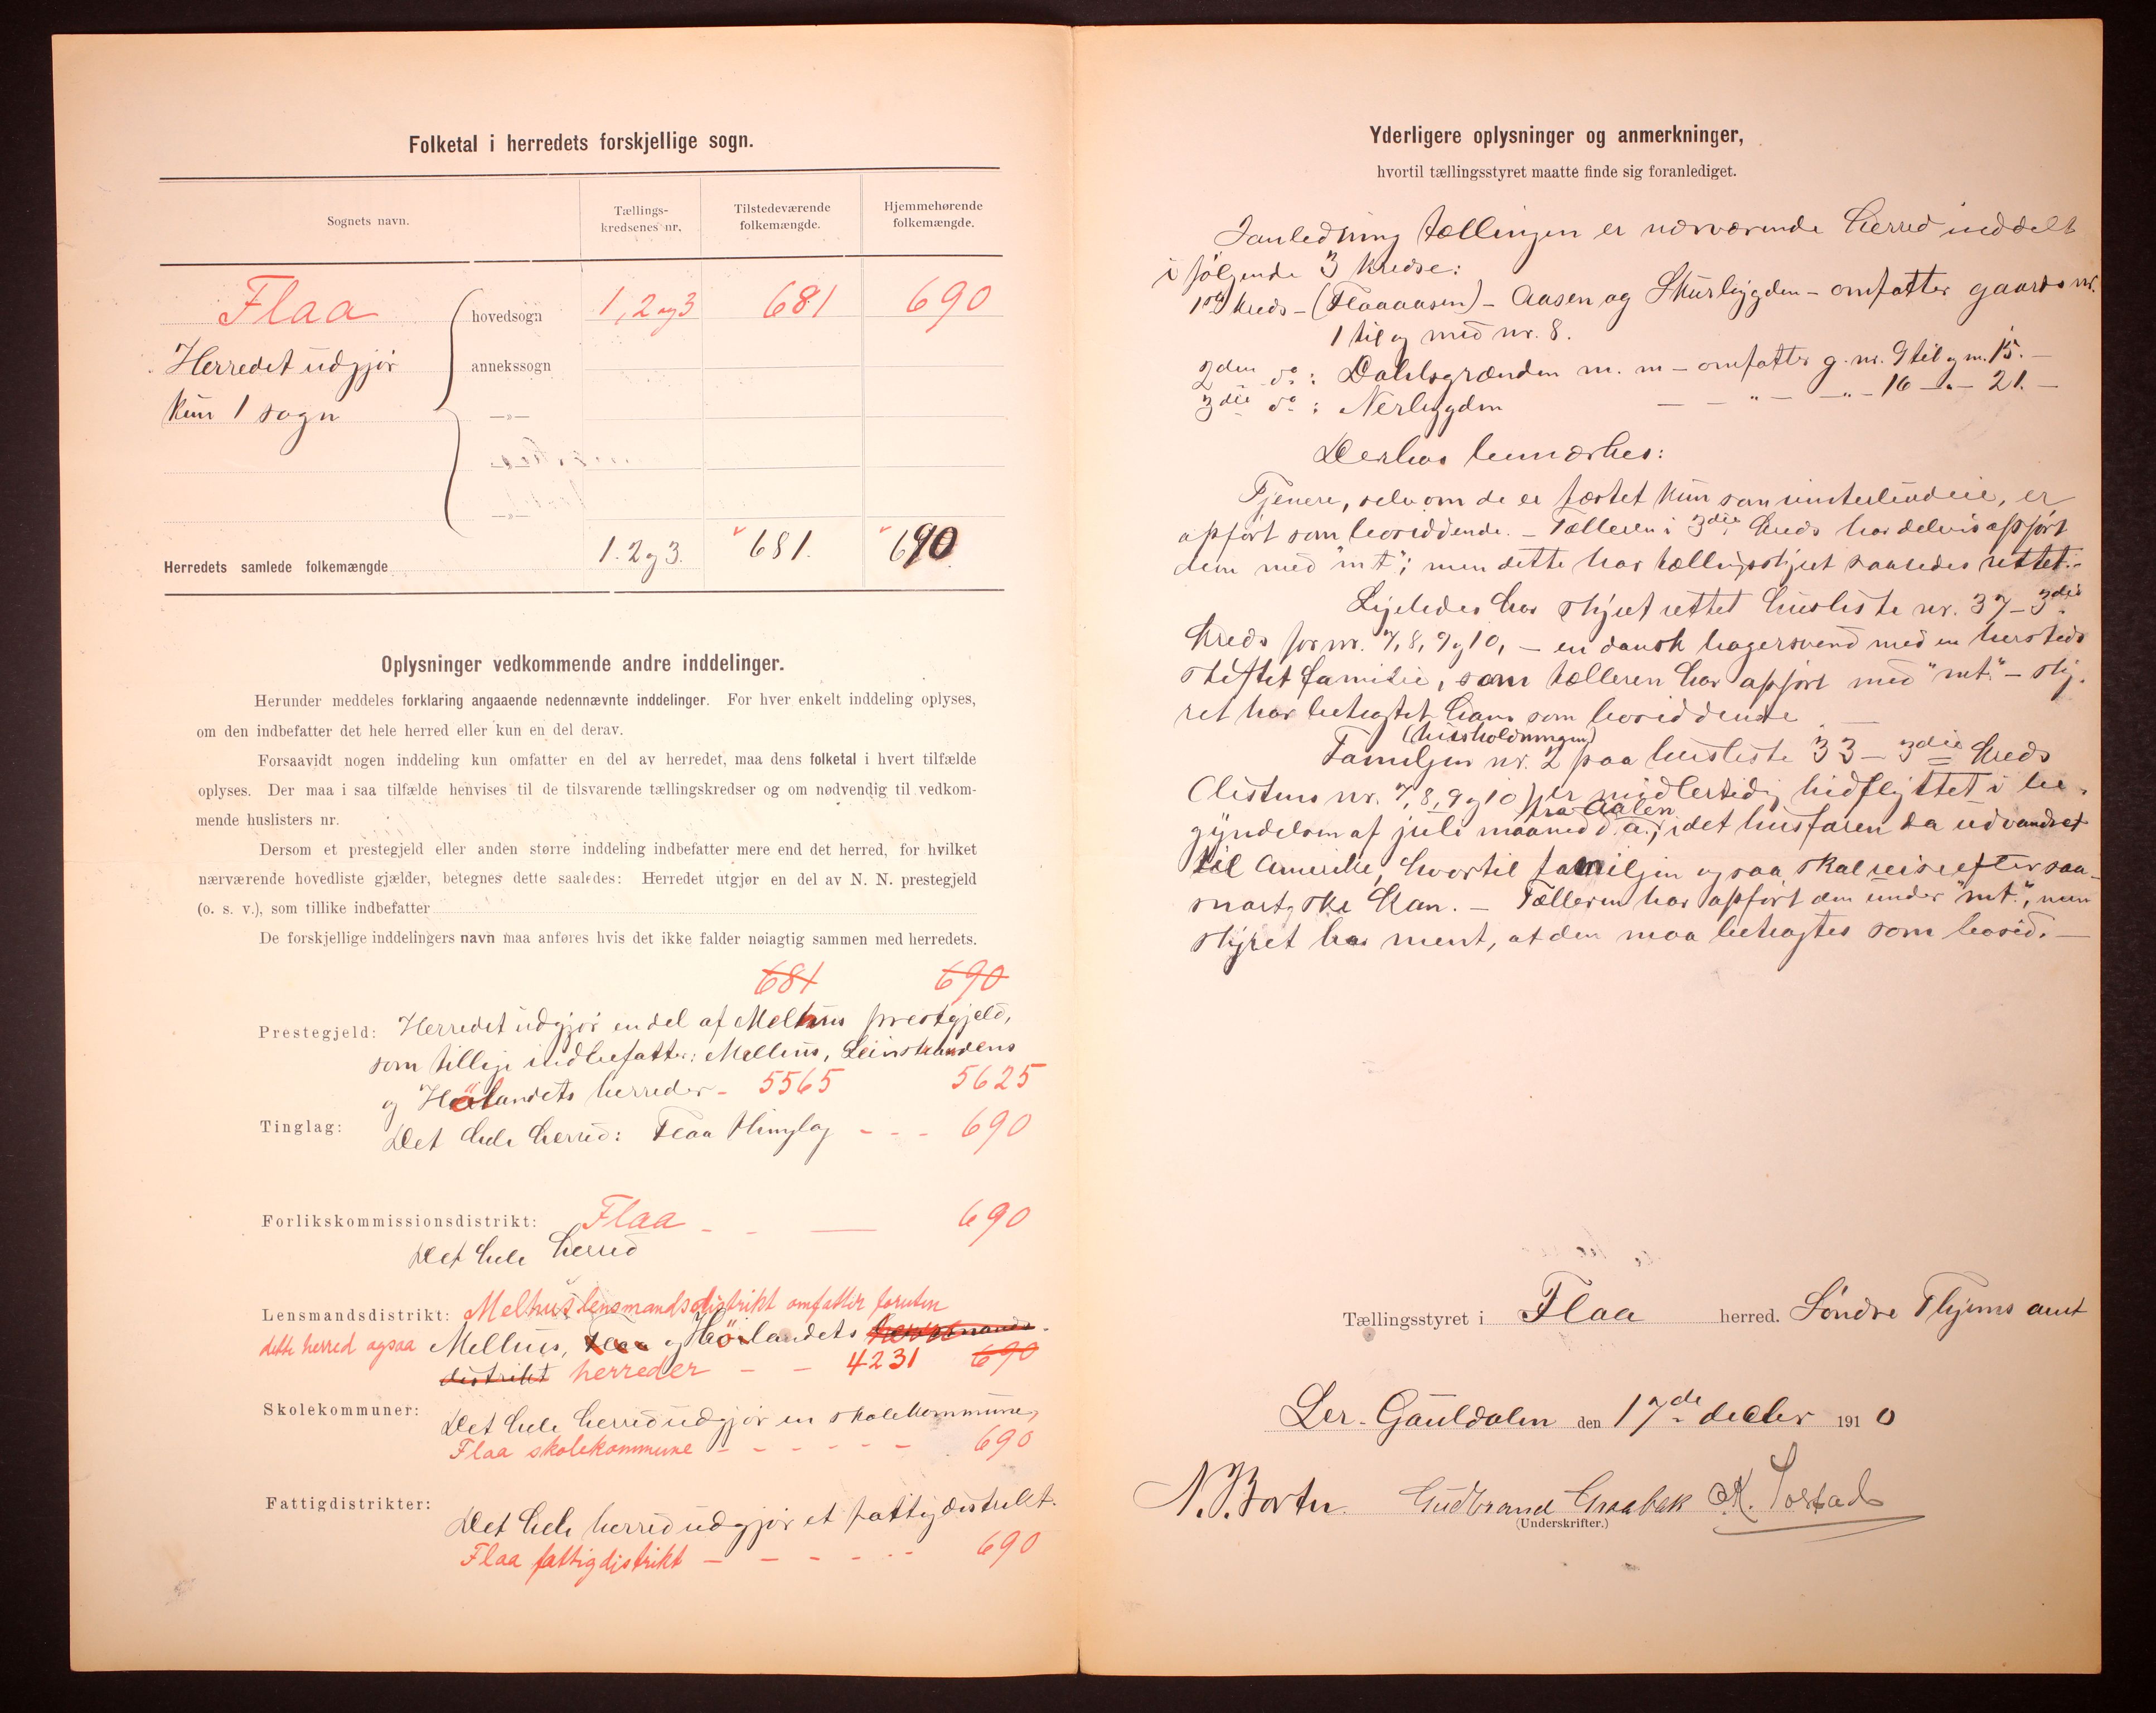 Folketal i herredets forskjellige sogn.
Sognets navn.
Tællings-
kredsenes nr,
Tilstedeværende
folkemængde.
Hjemmehørende
folkemængde.
Flaa hovedsogn 1, 2 og 3 681 690
Herredet udgjør annekssogn
kun 1 sogn —„—
—„—
Herredets samlede folkemængde 1. 2 og 3. 681. 690.
Oplysninger vedkommende andre inddelinger.
Herunder meddeles forklaring angaaende nedennævnte inddelinger. For hver enkelt inddeling oplyses,
om den indbefatter det hele herred eller kun en del derav.
Forsaavidt nogen inddeling kun omfatter en del av herredet, maa dens folketal i hvert tilfælde
oplyses. Der maa i saa tilfælde henvises til de tilsvarende tællingskredser og om nødvendig til vedkom-
mende huslisters nr.
Dersom et prestegjeld eller anden større inddeling indbefatter mere end det herred, for hvilket
nærværende hovedliste gjælder, betegnes dette saaledes: Herredet utgjør en del av N. N. prestegjeld
(o. s. v.), som tillike indbefatter
De forskjellige inddelingers navn maa anføres hvis det ikke falder nøiagtig sammen med herredets.
681 690
Prestegjeld: Herredet udgjør en del af Melhus prestgjeld,
som tillige indbefatter: Melhus, Leinstrandens
og Hölandets herreder - 5565 5625
Tinglag: Det hele herred: Flaa thinglag - - - 690
Forlikskommissionsdistrikt: Flaa - - — 690
Det hele herred
Lensmandsdistrikt: Melhus lensmandsdistrikt omfatter foruten
dette herred ogsaa Melhus, Flaa og Hölandets lensmands-
distrikt herreder - - 4231 690
Skolekommuner: Det hele herred udgjør en skolekommune,
Flaa skolekommune - - - - - - 690
Fattigdistrikter: Det hele herred udgjør et fattigdistrikt.
Flaa fattigdistrikt - - - - - 690
Yderligere oplysninger og anmerkninger,
hvortil tællingsstyret maatte finde sig foranlediget.
I anledning tællingen er nærværende herred inddelt
i følgende 3 kredse:
1ste kreds - (Flaaaasen) - Aasen og Skurbygden - omfatter gaards nr.
1 til og med nr. 8.
2den do: Dahlsgrænden m. m - omfatter g. nr. 9 til og m. 15. —
3die do: Nerbygden — — „ — — „ — 16 — „ — 21. —
Derhos bemærkes:
Tjenere, selv om de er fæstet kun som vinterløndeie, er
opført som bosiddende. — Tælleren i 3die kreds har delvis opført
dem med "mt"; men dette har tællingsstyret saaledes rettet. —
Ligeledes har styret rettet husliste nr. 37 - 3die
kreds for nr. 7, 8, 9 og 10, — en dansk bagersvend med en hersteds
stiftet familie, som tælleren har opført med "mt." — sty-
ret har betragtet ham som bosiddende. —
(husholdningen)
Familjen nr. 2 paa husliste 33 - 3die kreds
(listens nr. 7, 8, 9 og 10) er midlertidig hidflyttet i be-
fra Aalen
gyndelsen af juli maaned d. a.; idet husfaren da udvandret
til Amerika, hvortil familjen ogsaa skal reise efter saa-
snart ske kan. — Tælleren har opført den under "mt.", men
styret har ment, at den maa betragtes som bosid. —
Tællingsstyret i Flaa herred. Søndre Thjems amt
Ler - Gauldalen den 17de decbr 1910
N. Borten. Gudbrand Graabak K. Torstad
(Underskrifter.)